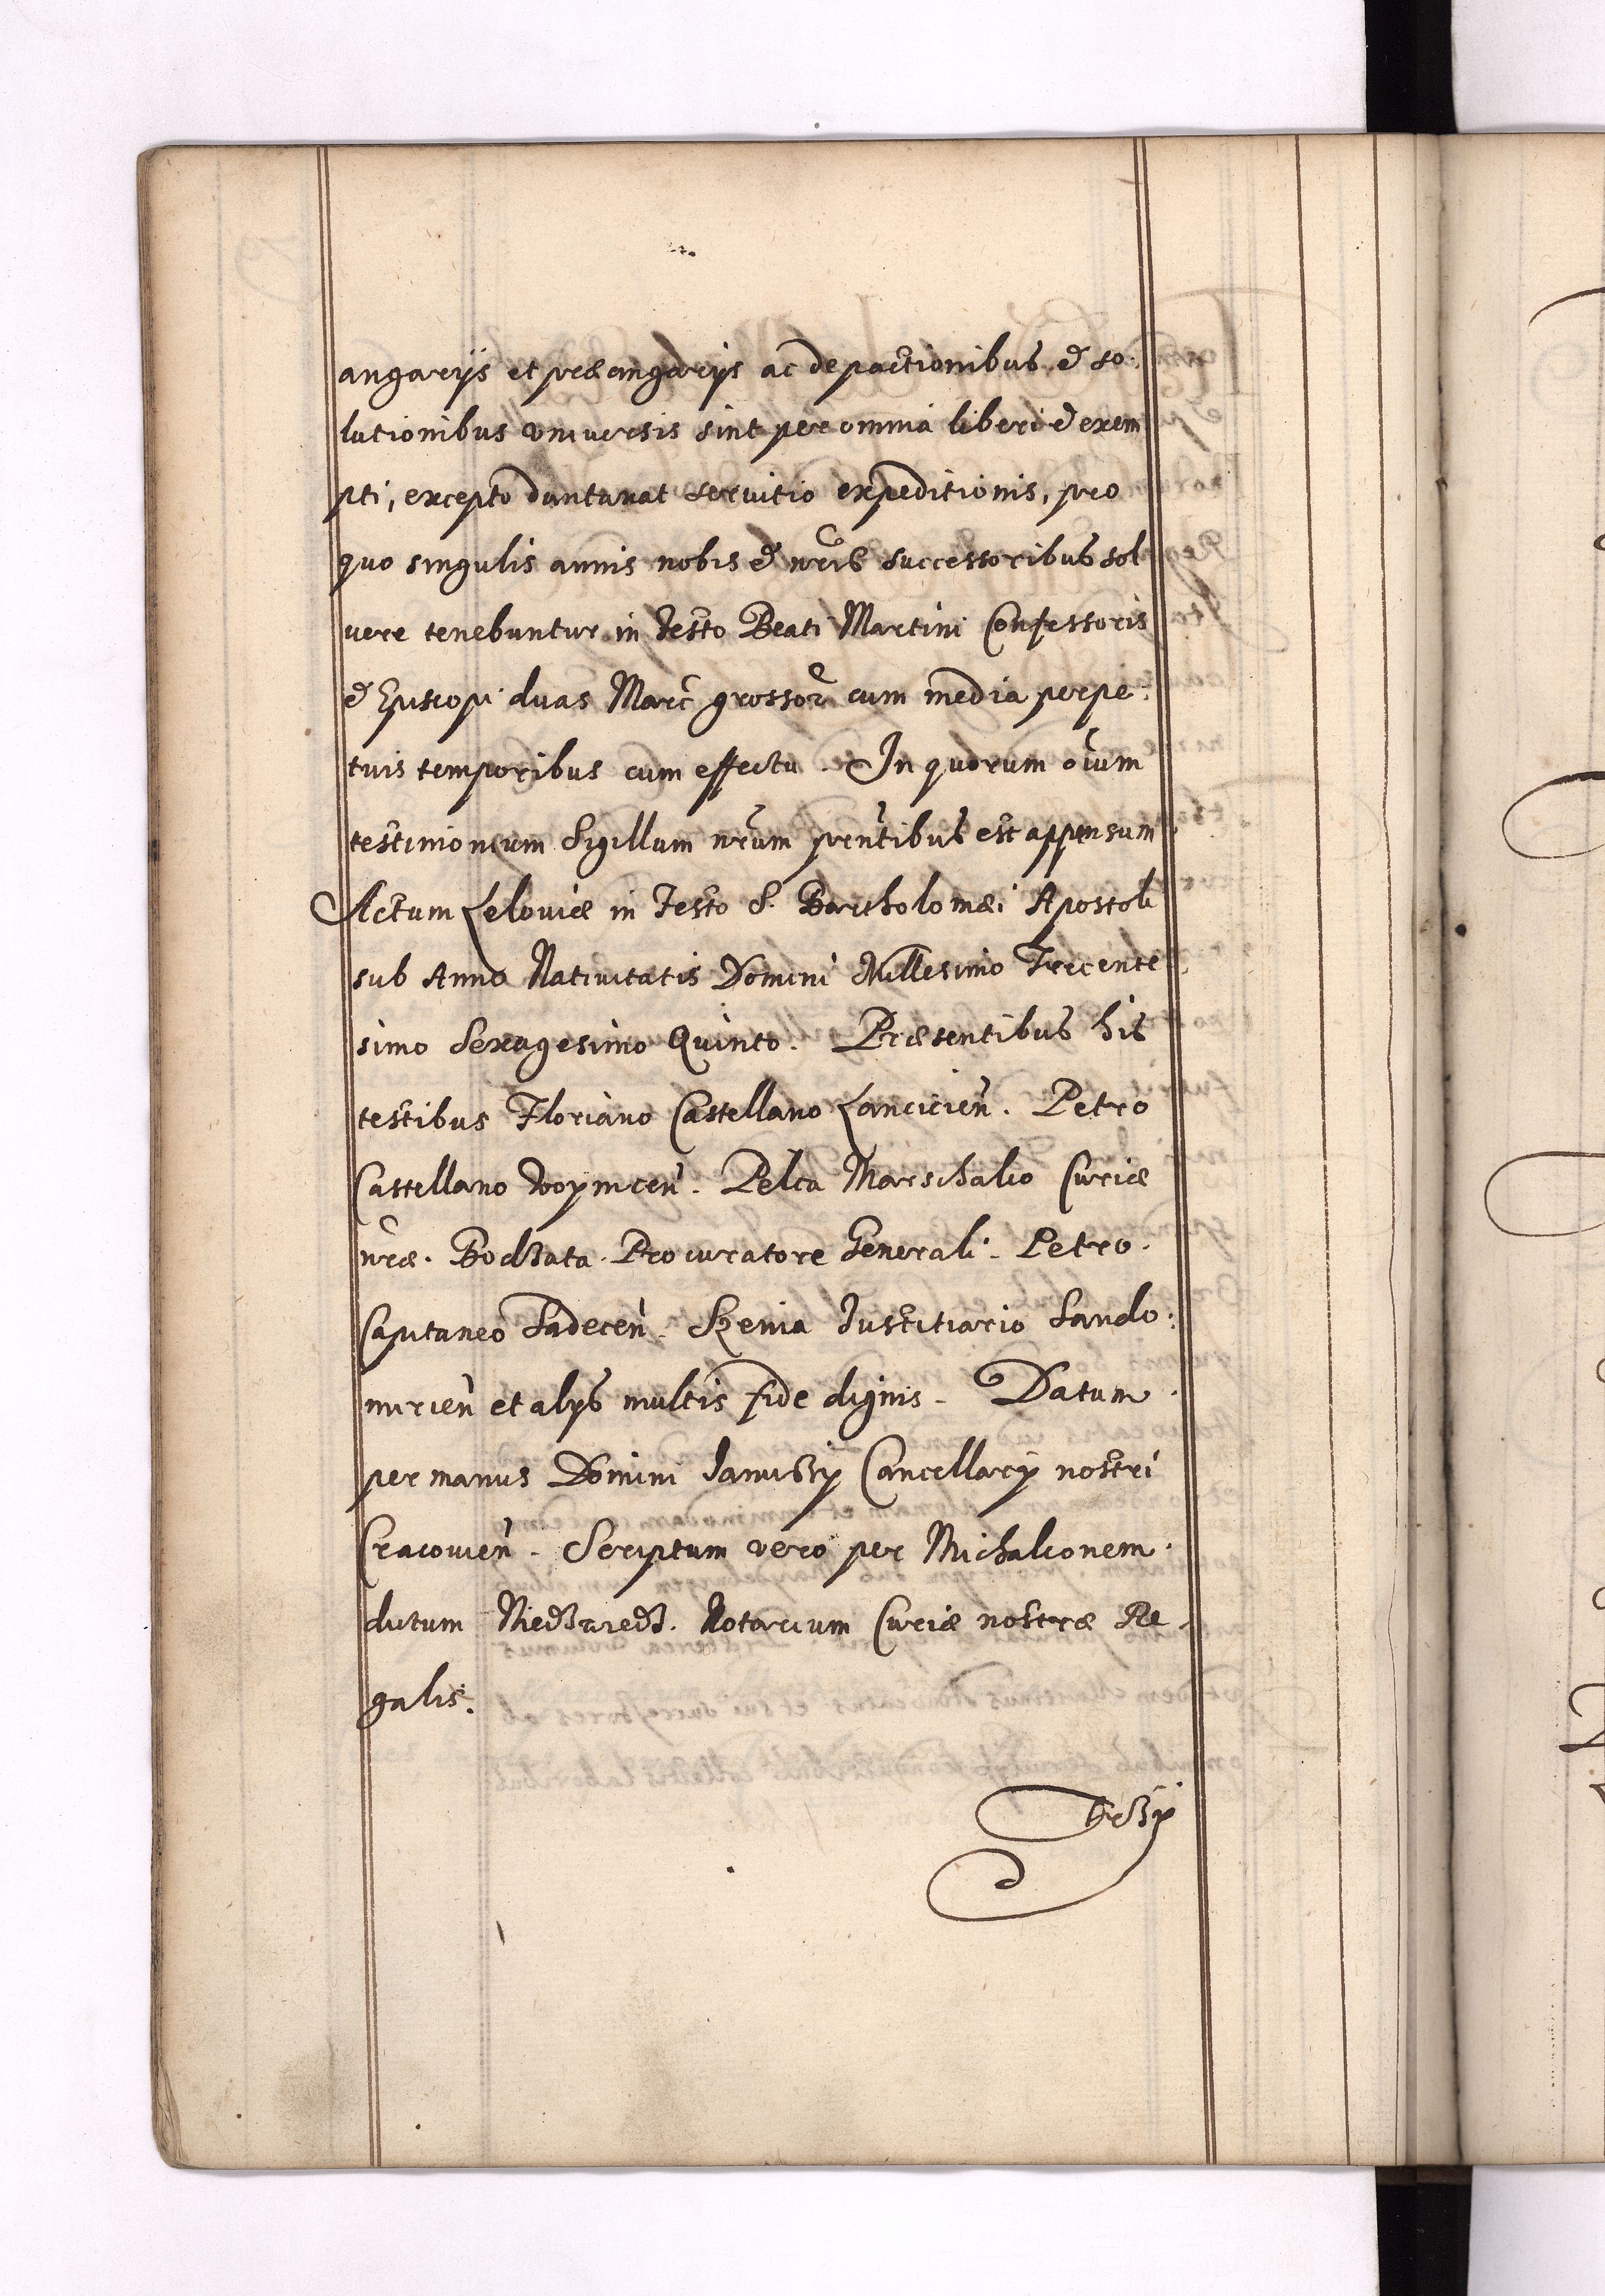 angarijs et præangarijs ac depactionibus & so:
lutionibus vniuersis sint per omnia liberi & exem
pti, excepto duntaxat seruitio expeditionis, pro
quo singulis annis nobis & nr̃is successoribus sol
vere tenebuntur in Festo Beati Martini Confessoris
& Episcopi duas Marc̃ grossor̃ cum media perpe:
tuis temporibus cum effectu. In quorum oĩum
testimonium Sigillum nr̃um prẽntibus est appensum.
Actum Lelouiæ in Festo S. Bartholomæi Apostoli
sub Anno Natiuitatis Domini Millesimo Trecente
simo Sexagesimo Quinto. Præsentibus his
testibus Floriano Castellano Lancicieñ. Petro
Castellano Woyniceñ. Pelca Marschalco Curiæ
nr̃æ. Bodzata Procuratore Generali. Petro.
Capitaneo Sadeceñ. Szenia Iustitiario Sando:
mirieñ et alijs multis fide dignis. Datum.
per manus Domini Janussij Cancellarij nostri
Cracouieñ. Scriptum vero per Michalconem.
dictum Niedzwiedz. Notarium Curiæ nostræ Re.
galis.